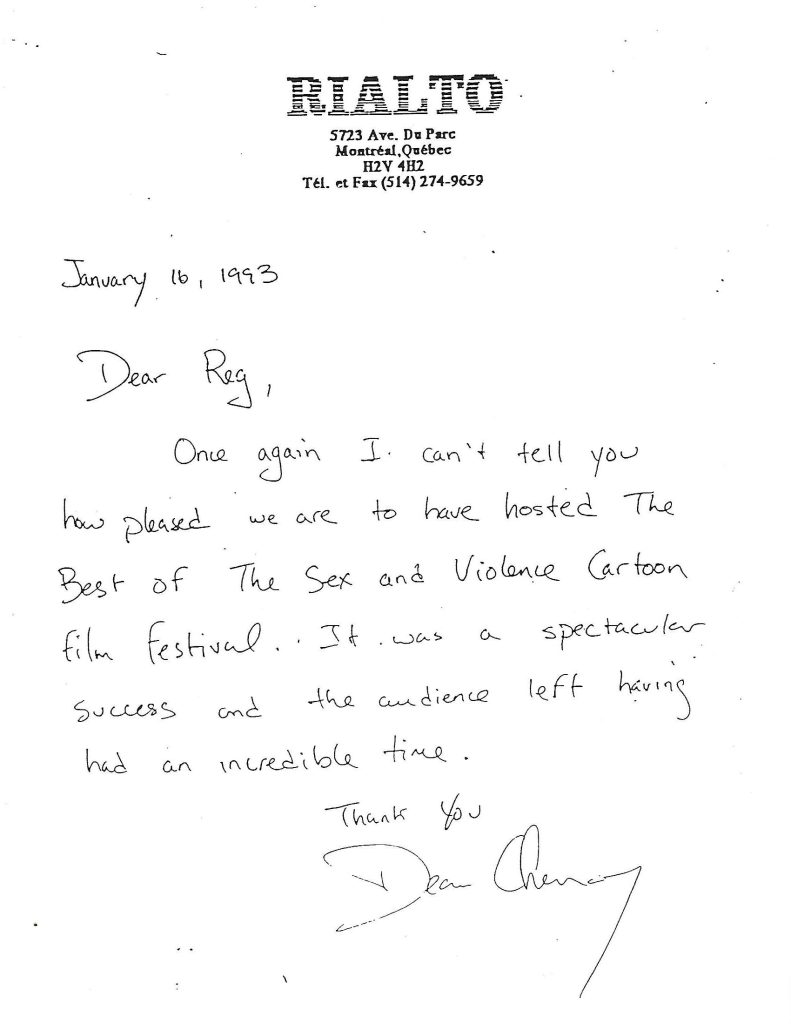 RIALTO
5723 Ave. Du Parc
Montréal,Québec
H2V 4H2
Tél. et Fax (514) 274-9659
January 16, 1993
Dear Reg,
Once again I can't tell you
how pleased we are to have hosted The
Best of The Sex and Violence Cartoon
film festival. It was a spectacular
success and the audience left having
had an incredible time.
Thank You
Dean